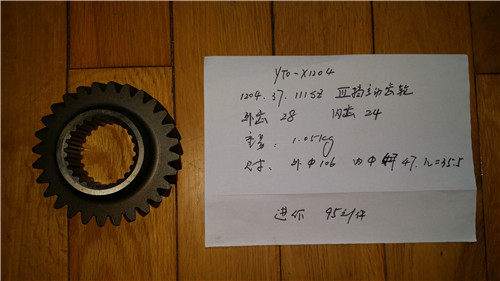 YTO-X1204
1204.37.111 Ⅲ挡主动齿轮
外齿 28 内齿 24
重量: 1.05kg
尺寸: 外Φ106 内Φ 47. h=35.5
进价 95元/件